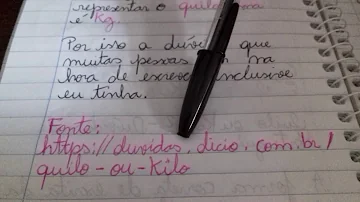 representar o quilo
é Kg.
Por isso a dúvi que
muitas pessoas na
hora de escrever inclusive
eu tinha.
Fonte:
https://duvidas.dicio.com.br/
quilo-ou-kilo